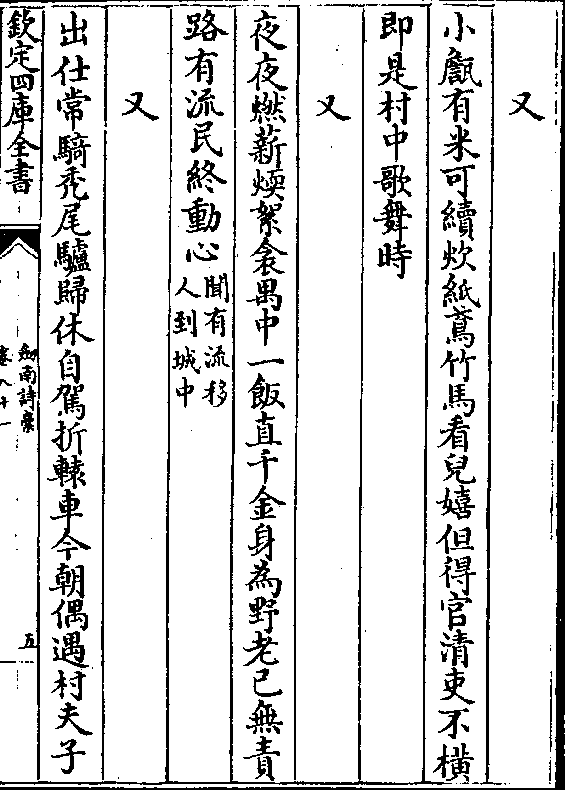 又
小甑有米可續炊紙鳶竹馬看兒嬉但得官清吏不橫
即是村中歌舞時
又
夜夜燃薪煖絮衾禺中一飯直千金身為野老已無責
路有流民終動心聞有流移
人到城中
又
出仕常騎禿尾驢歸休自駕折轅車今朝偶遇村夫子
欽定四庫全書
劍南詩稾
卷八十一
五